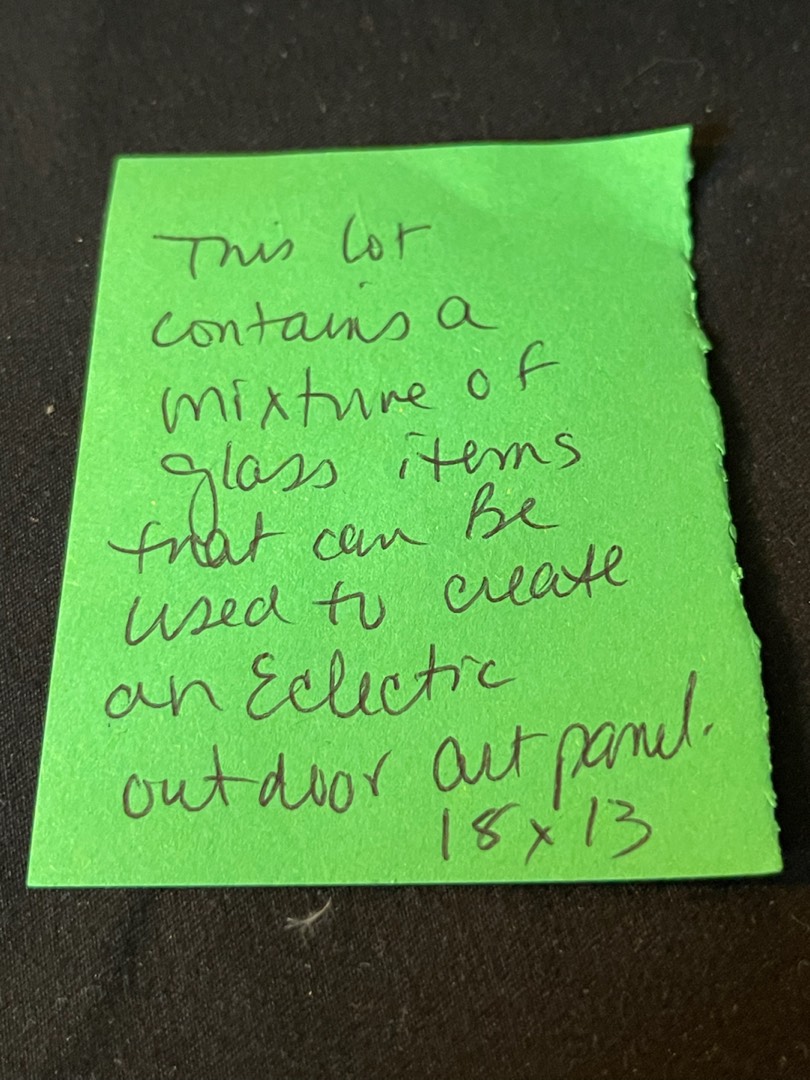 This lot
contains a
mixture of
glass items
that can Be
used to create
an Eclectic
outdoor art panel.
18 x 13